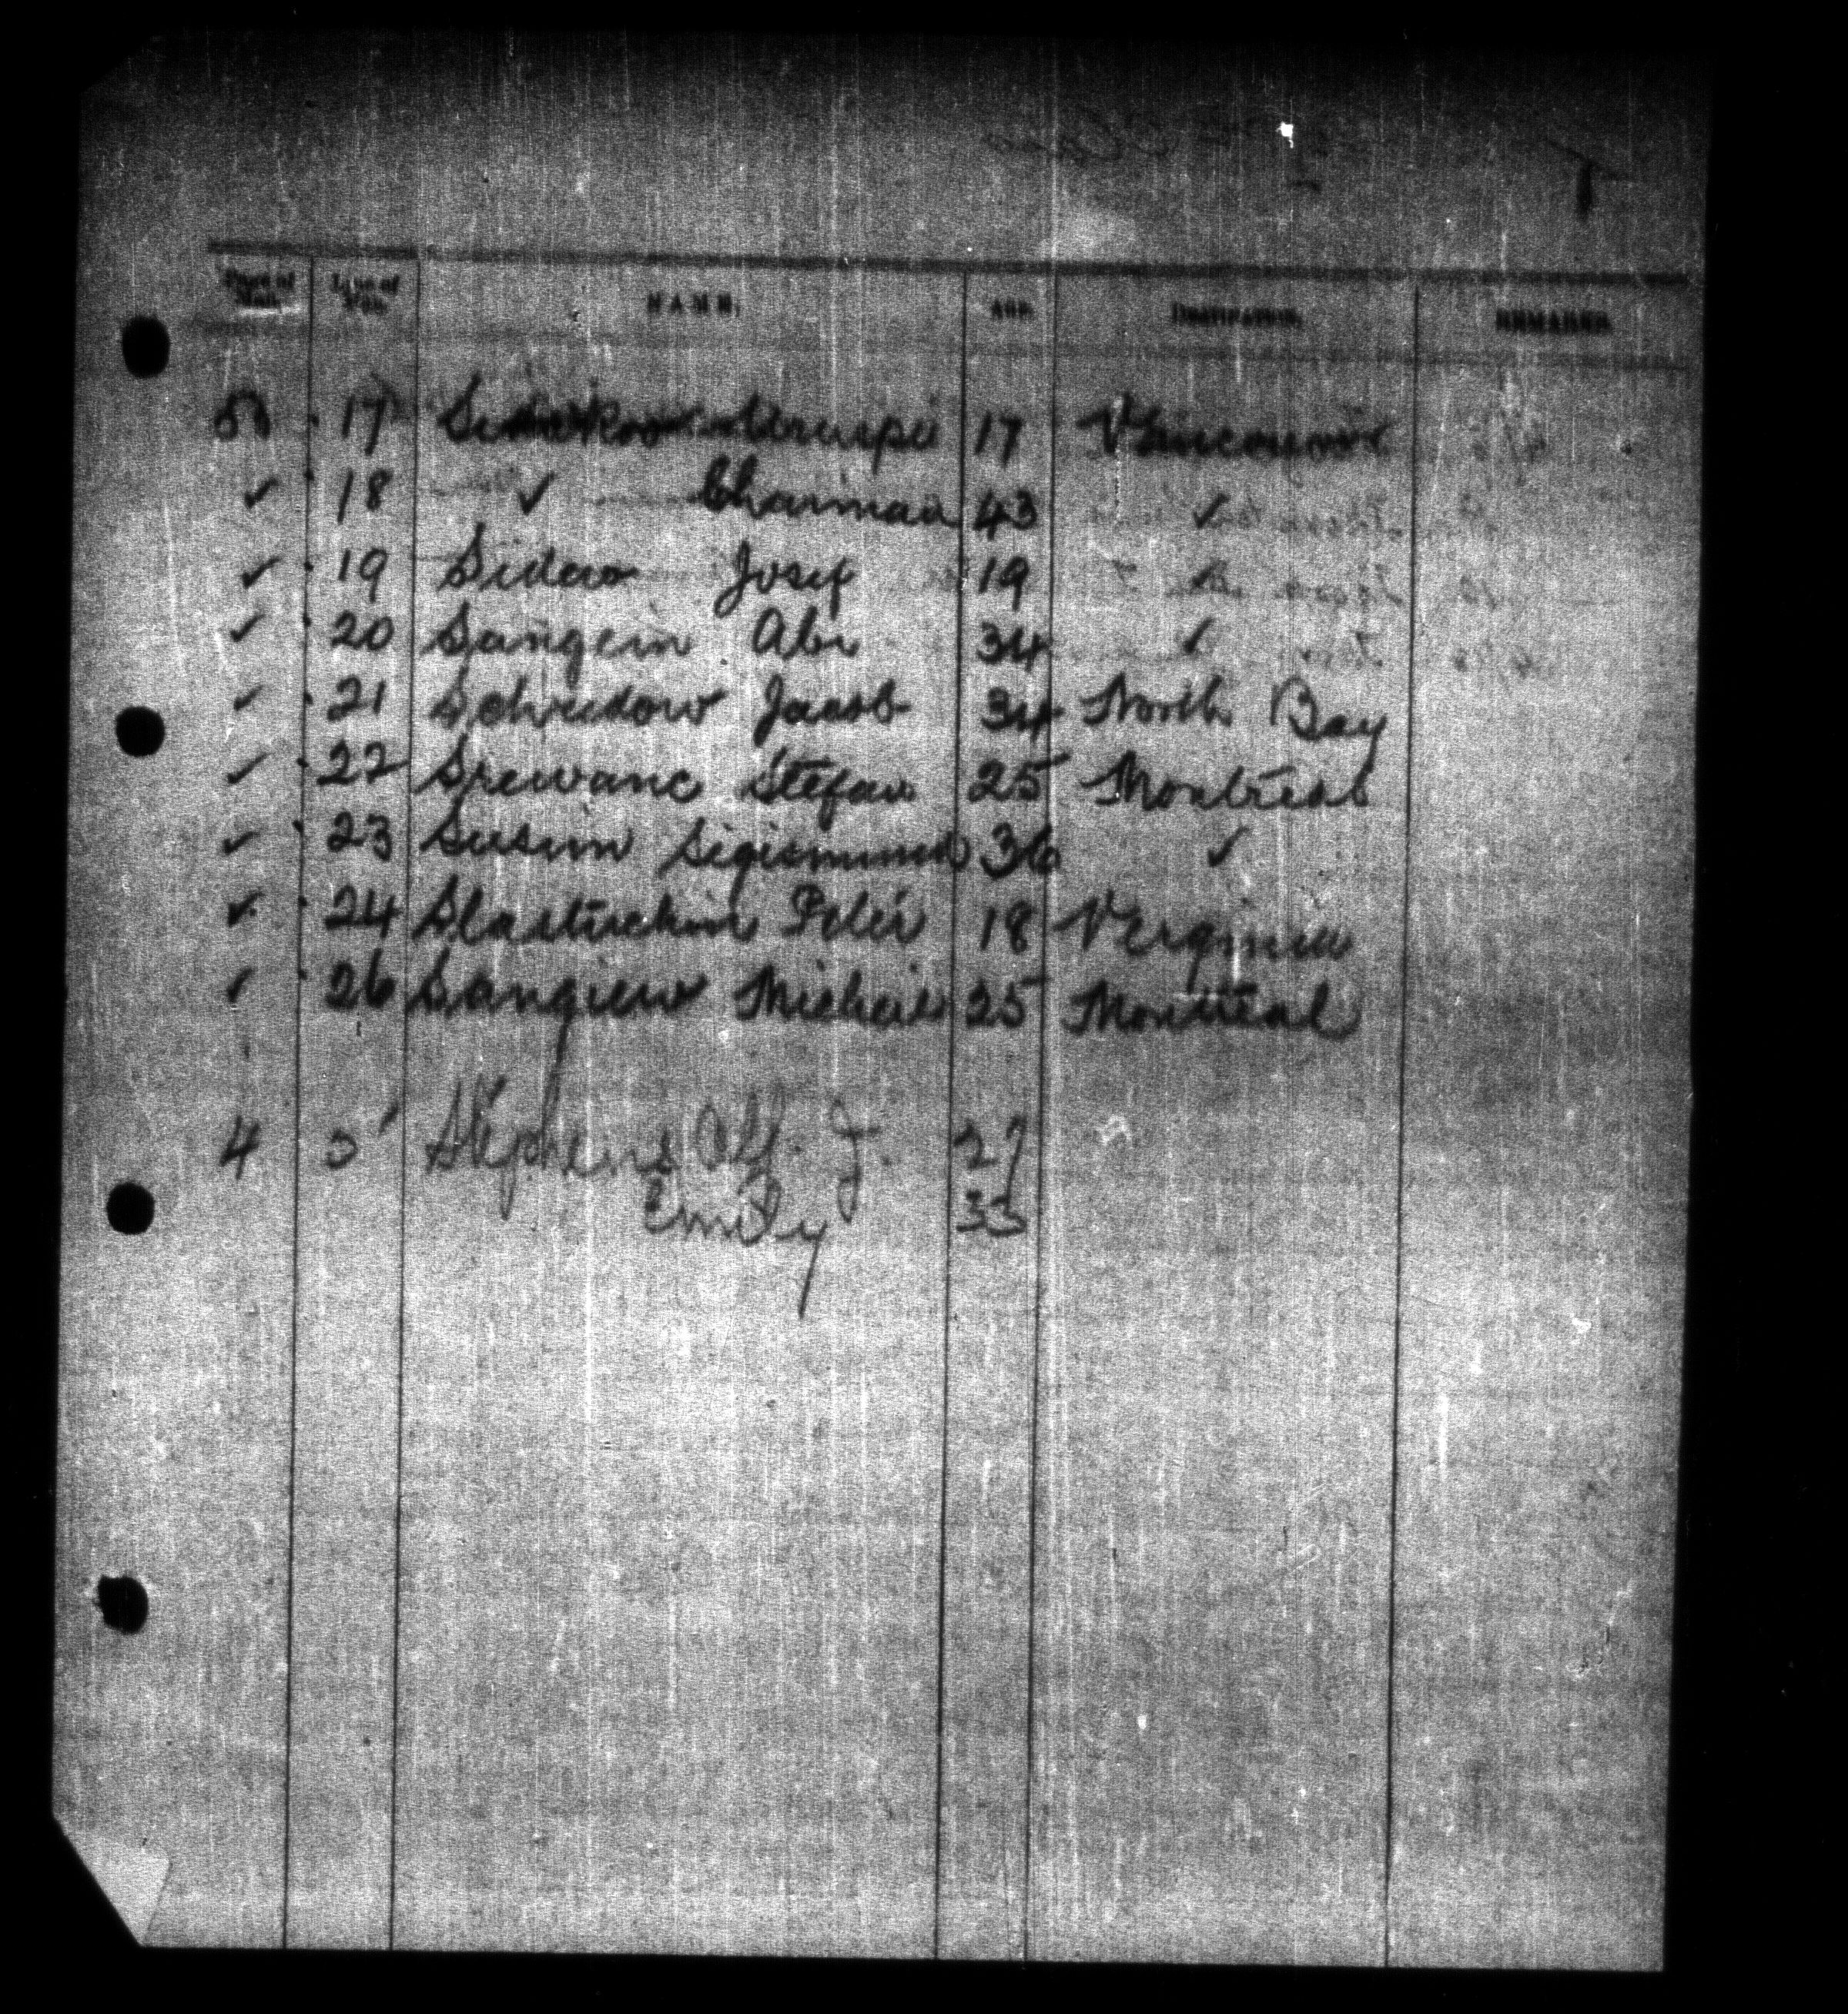 Page of Mnfs. Line of Mnfs. NAME. AGE. DESTINATION. REMARKS.
17 17 Vancouver
✓ 18 ✓ Chaimaa 43 ✓
✓ 19 Sidaro Josef 19 ✓
✓ 20 Sangein Abi 34 ✓
✓ 21 Schridow Jacob 34 North Bay
✓ 22 Srewanc Stefan 25 Montreal
✓ 23 Susin Sigismund 36 ✓
✓ 24 Slastuchin Peter 18 Verginia
✓ 26 Sangiew Michail 25 Montreal
4 5 Stephens Alf. J. 27
Emily 33